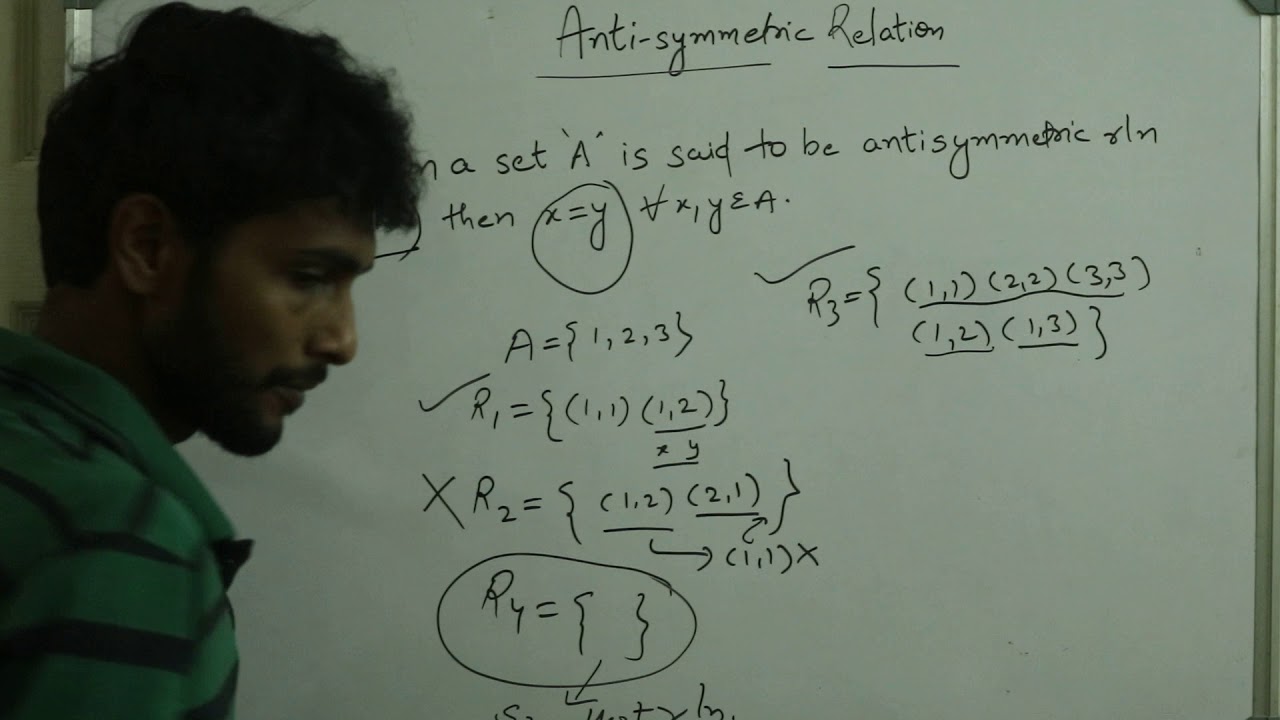 Anti-symmetric Relation
n a set 'A' is said to be antisymmetric rln
) then x=y ∀ x, y ε A.
R3={ (1,1) (2,2) (3,3)
(1,2) (1,3) }
A={1,2,3}
✓ R1={(1,1) (1,2)}
x y
X R2={ (1,2) (2,1) }
→ (1,1) X
R4={ }
rln.